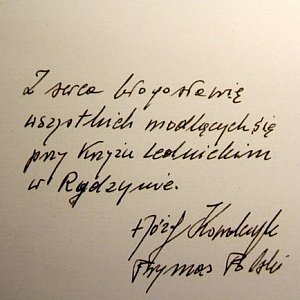 Z serca błogosławię
wszystkich modlących się
przy Krzyżu Lednickim
w Rydzynie.
+ Józef Kowalczyk
Prymas Polski